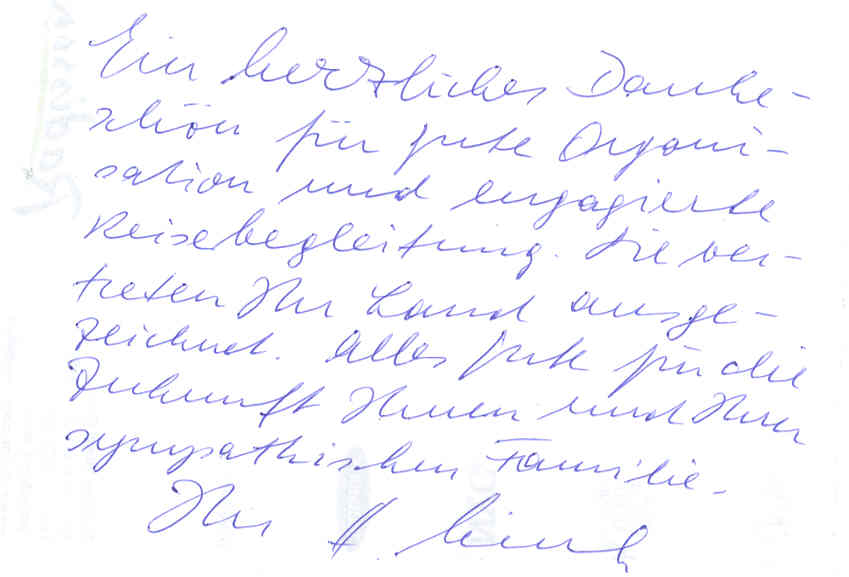 Ein herzliches Danke-
schön für gute Organi-
sation und engagierte
Reisebegleitung. Sie ver-
treten Ihr Land ausge-
zeichnet. Alles gute für die
Zukunft Ihnen und Ihrer
sympathischen Familie.
Ihr